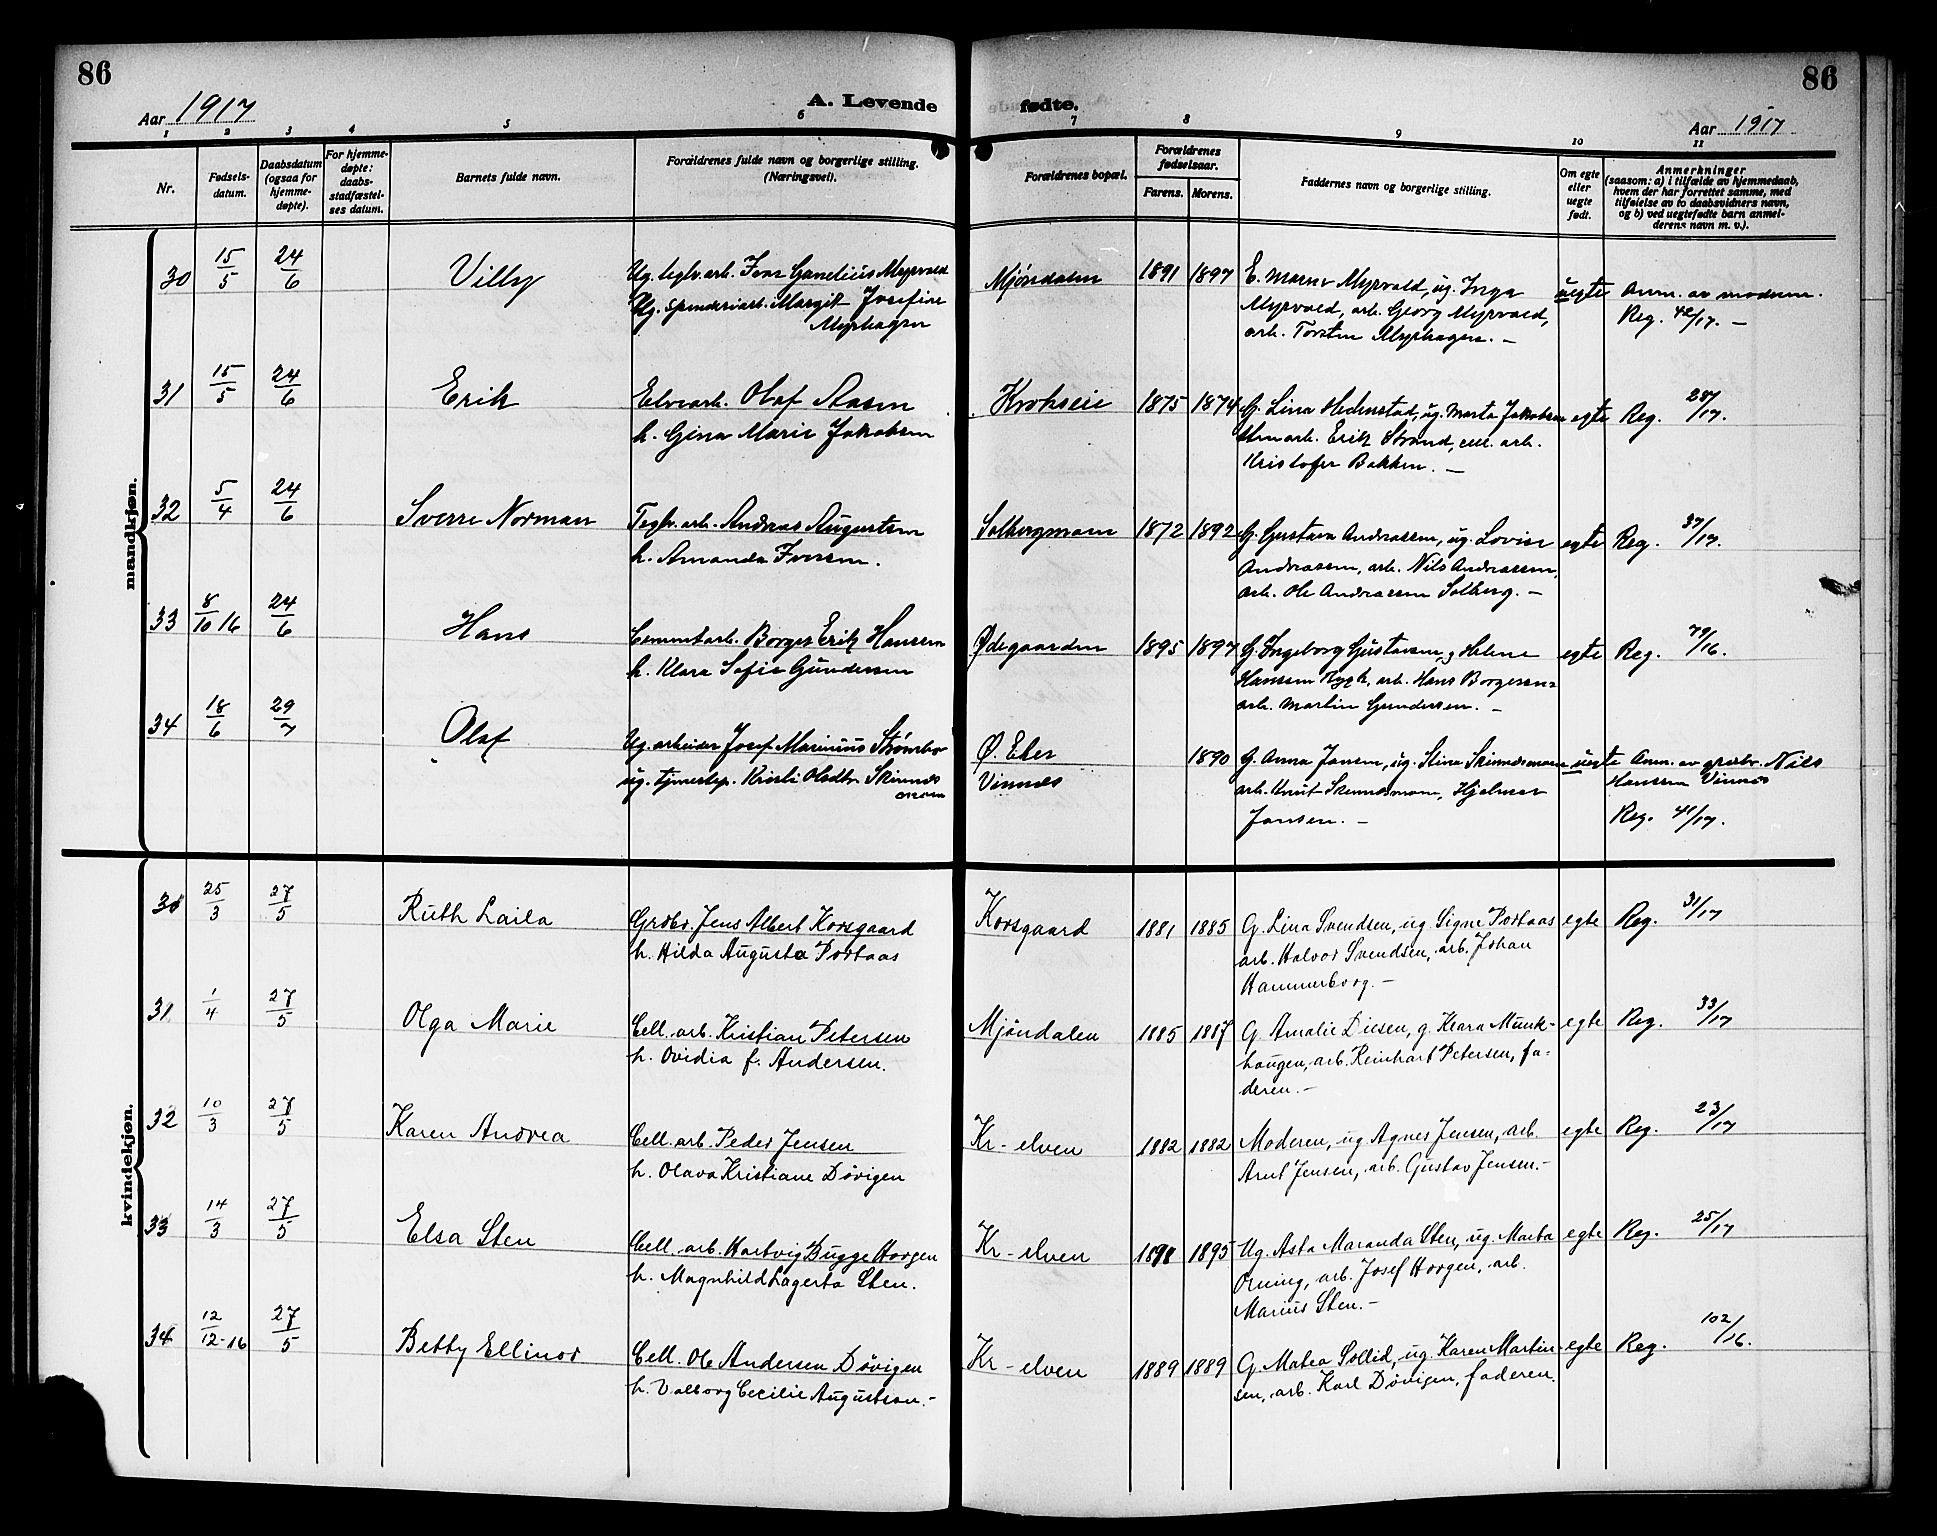 86
86
Aar 1917
A. Levende fødte.
Aar 1917
1 2 3 4 5 6 7 8 9 10 11
Nr.
Fødsels-
datum.
Daabsdatum
(ogsaa for
hjemme-
døpte).
For hjemme-
døpte:
daabs-
stadfæstel-
ses datum.
Barnets fulde navn.
Forældrenes fulde navn og borgerlige stilling.
(Næringsvei).
Forældrenes bopæl.
Forældrenes
fødselsaar.
Farens. Morens.
Faddernes navn og borgerlige stilling.
Om egte
eller
uegte
født.
Anmerkninger
(saasom: a) i tilfælde av hjemmedaab,
hvem der har forrettet samme, med
tilføielse av to daabsvidners navn,
og b) ved uegtefødte barn anmel-
derens navn m. v.).
mandkjøn.
30 15/5 24/6 Villy
Ug. teglv.arb. Ivar Myrvold
Ug. spinderiarb. Margit Josefine
Myrhagen
Mjøndalen 1891 1897
E. Maren Myrvold, ug. Inga
Myrvold, arb. Georg Myrvold,
arb. Torsten Myrhagen. –
uegte
Anm. av moderen.
Reg. 42/17. –
31 15/5 24/6 Erik
Elvearb. Olaf Aasen
h. Gina Marie Jakobsen
Krokseie 1875 1874
G. Lina Hedenstad, ug. Marta Jakobsen
arb. Erik Strand, cell. arb.
Kristofer Bakken. –
egte
Reg. 28/17.
32 5/4 24/6 Sverre Norman
Teglv. arb. Andreas Augustsen
h. Amanda Iversen.
Solbergmoen 1872 1892
G. Gustava Andreassen, ug. Lovise
Andreassen, arb. Nils Andreassen,
arb. Ole Andreassen Solberg. –
egte
Reg. 37/17.
33 8/10 16 24/6 Hans
Cementarb. Borger Erik Hansen
h. Klara Sofie Gundersen
Ødegaarden 1895 1897
G. Ingeborg Gustavsen, g. Helene
Hansen arb. Hans Borgersen
arb. Martin Gundersen. –
egte
Reg. 79/16.
34 18/6 29/7 Olaf
Ug. arbeider Josef Marinius Strømbo
ug. tjenestep. Kristi Olsdtr. Skinnes
moen
Ø. Eker
Vinnes
1890
G. Anna Jansen, ug. Stina Skinnesmoen
arb. Knut Skinnesmoen, Hjelmer
Jansen. –
uegte
Anm. av grdbr. Nils
Hansen Vinnes
Reg. 41/17.
kvindekjøn.
30 25/3 27/5 Ruth Laila
Grdbr. Jens Albert Korsgaard
h. Hilda Augusta Portaas
Korsgaard 1881 1885
G. Lina Svendsen, ug. Signe Portaas
arb. Halvor Svendsen, arb. Johan
Hammerborg. –
egte
Reg. 31/17
31 1/4 27/5 Olga Marie
Cell. arb. Kristian Petersen
h. Ovidia f. Andersen.
Mjöndalen 1885 1887
G. Amalie Diesen, g. Klara Munk-
haugen, arb. Reinhart Petersen, fa-
deren. –
egte
Reg. 33/17
32 10/3 27/5 Karen Andrea
Cell. arb. Peder Jensen
h. Olava Kristiane Døvigen
Kr-elven 1882 1882
Moderen, ug Agnes Jensen, arb.
Arnt Jensen, arb. Gustav Jensen. –
egte
Reg. 23/17
33 14/3 27/5 Elsa Sten
Cell. arb. Hartvig Bugge Horgen
h. Magnhild Lagerta Sten.
Kr-elven 1898 1895
Ug. Asta Maranda Sten, ug. Marta
Orning, arb. Josef Horgen, arb.
Marius Sten. –
egte
Reg. 25/17
34 12/12-16 27/5 Betty Ellinor
Cell. Ole Andersen Døvigen
h. Valborg Cecilie Augustson. –
Kr-elven 1889 1889
G. Matea Sollid, ug. Karen Martin-
sen, arb. Karl Døvigen, faderen.
egte
Reg. 102/16.